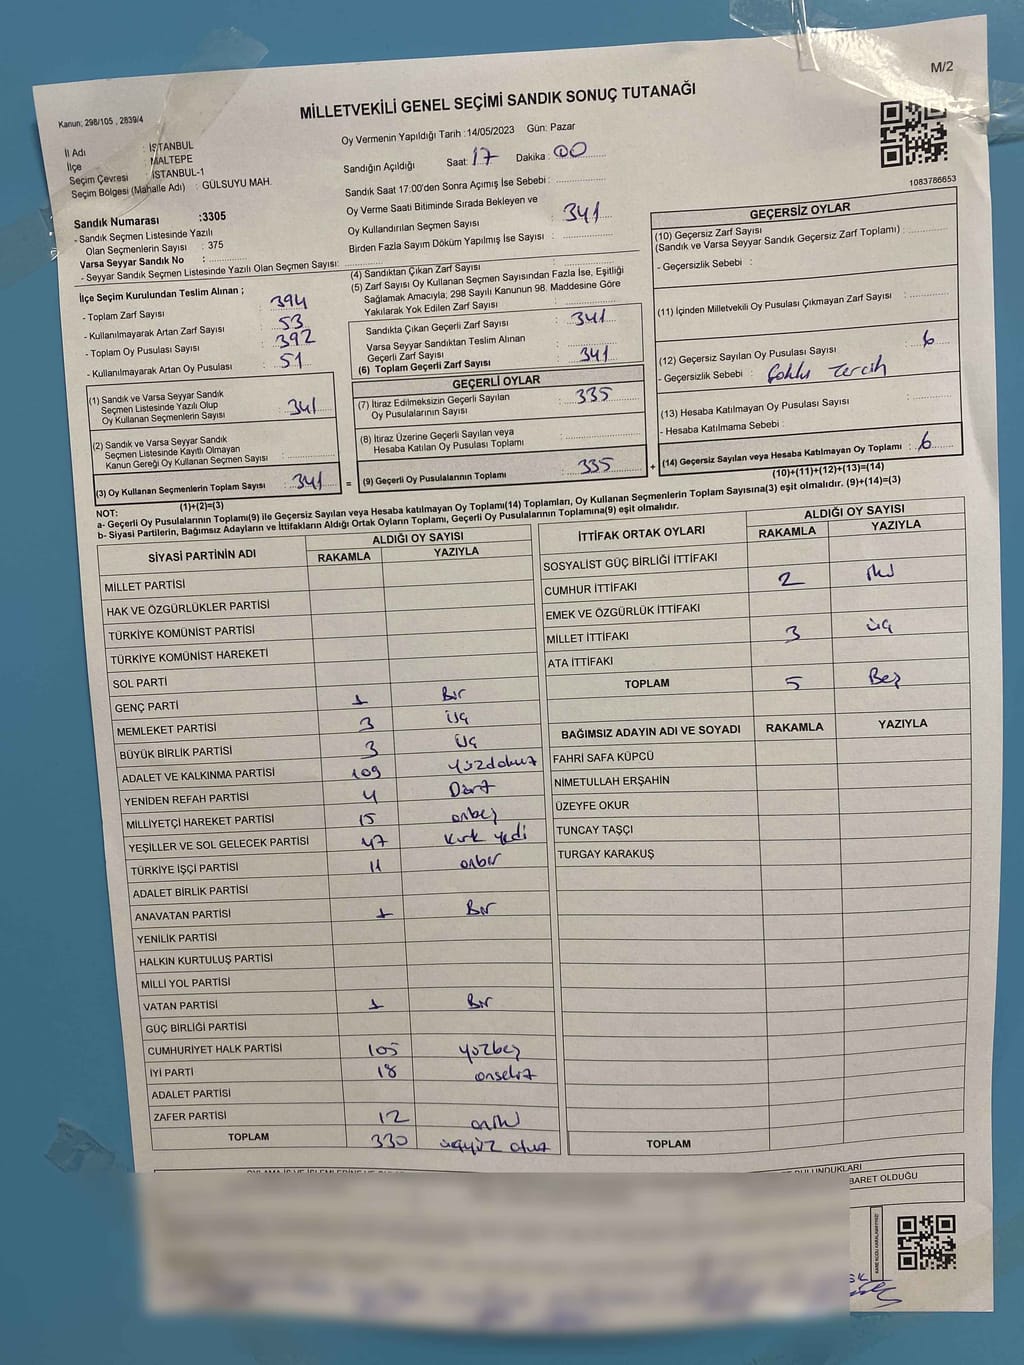 M/2
MİLLETVEKİLİ GENEL SEÇİMİ SANDIK SONUÇ TUTANAĞI
Kanun; 298/105 , 2839/4
İl Adı : İSTANBUL
İlçe MALTEPE
Seçim Çevresi İSTANBUL-1
Seçim Bölgesi (Mahalle Adı) : GÜLSUYU MAH.
Oy Vermenin Yapıldığı Tarih :14/05/2023 Gün: Pazar
Sandığın Açıldığı Saat: 17 Dakika : 00
Sandık Saat 17:00'den Sonra Açımış İse Sebebi :
Oy Verme Saati Bitiminde Sırada Bekleyen ve
Oy Kullandırılan Seçmen Sayısı : 341
Birden Fazla Sayım Döküm Yapılmış İse Sayısı :
1083786653
Sandık Numarası :3305
- Sandık Seçmen Listesinde Yazılı
Olan Seçmenlerin Sayısı : 375
Varsa Seyyar Sandık No :
- Seyyar Sandık Seçmen Listesinde Yazılı Olan Seçmen Sayısı:
İlçe Seçim Kurulundan Teslim Alınan ;
- Toplam Zarf Sayısı : 394
- Kullanılmayarak Artan Zarf Sayısı : 53
- Toplam Oy Pusulası Sayısı : 392
- Kullanılmayarak Artan Oy Pusulası : 51
(1) Sandık ve Varsa Seyyar Sandık
Seçmen Listesinde Yazılı Olup
Oy Kullanan Seçmenlerin Sayısı : 341
(2) Sandık ve Varsa Seyyar Sandık
Seçmen Listesinde Kayıtlı Olmayan
Kanun Gereği Oy Kullanan Seçmen Sayısı :
(3) Oy Kullanan Seçmenlerin Toplam Sayısı : 341 =
(1)+(2)=(3)
(4) Sandıktan Çıkan Zarf Sayısı :
(5) Zarf Sayısı Oy Kullanan Seçmen Sayısından Fazla İse, Eşitliği
Sağlamak Amacıyla; 298 Sayılı Kanunun 98. Maddesine Göre
Yakılarak Yok Edilen Zarf Sayısı :
Sandıkta Çıkan Geçerli Zarf Sayısı : 341
Varsa Seyyar Sandıktan Teslim Alınan
Geçerli Zarf Sayısı :
(6) Toplam Geçerli Zarf Sayısı : 341
GEÇERLİ OYLAR
(7) İtiraz Edilmeksizin Geçerli Sayılan
Oy Pusulalarının Sayısı : 335
(8) İtiraz Üzerine Geçerli Sayılan veya
Hesaba Katılan Oy Pusulası Toplamı :
(9) Geçerli Oy Pusulalarının Toplamı : 335 +
GEÇERSİZ OYLAR
(10) Geçersiz Zarf Sayısı
(Sandık ve Varsa Seyyar Sandık Geçersiz Zarf Toplamı) :
- Geçersizlik Sebebi :
(11) İçinden Milletvekili Oy Pusulası Çıkmayan Zarf Sayısı :
(12) Geçersiz Sayılan Oy Pusulası Sayısı : 6
- Geçersizlik Sebebi : Çoklu Tercih
(13) Hesaba Katılmayan Oy Pusulası Sayısı :
- Hesaba Katılmama Sebebi :
(14) Geçersiz Sayılan veya Hesaba Katılmayan Oy Toplamı : 6
(10)+(11)+(12)+(13)=(14)
NOT:
a- Geçerli Oy Pusulalarının Toplamı(9) ile Geçersiz Sayılan veya Hesaba katılmayan Oy Toplamı(14) Toplamları, Oy Kullanan Seçmenlerin Toplam Sayısına(3) eşit olmalıdır. (9)+(14)=(3)
b- Siyasi Partilerin, Bağımsız Adayların ve İttifakların Aldığı Ortak Oyların Toplamı, Geçerli Oy Pusulalarının Toplamına(9) eşit olmalıdır.
SİYASİ PARTİNİN ADI ALDIĞI OY SAYISI
RAKAMLA YAZIYLA
MİLLET PARTİSİ
HAK VE ÖZGÜRLÜKLER PARTİSİ
TÜRKİYE KOMÜNİST PARTİSİ
TÜRKİYE KOMÜNİST HAREKETİ
SOL PARTİ
GENÇ PARTİ 1 Bir
MEMLEKET PARTİSİ 3 üç
BÜYÜK BİRLİK PARTİSİ 3 üç
ADALET VE KALKINMA PARTİSİ 109 yüzdokuz
YENİDEN REFAH PARTİSİ 4 Dört
MİLLİYETÇİ HAREKET PARTİSİ 15 onbeş
YEŞİLLER VE SOL GELECEK PARTİSİ 47 kırk yedi
TÜRKİYE İŞÇİ PARTİSİ 11 onbir
ADALET BİRLİK PARTİSİ
ANAVATAN PARTİSİ 1 Bir
YENİLİK PARTİSİ
HALKIN KURTULUŞ PARTİSİ
MİLLİ YOL PARTİSİ
VATAN PARTİSİ 1 Bir
GÜÇ BİRLİĞİ PARTİSİ
CUMHURİYET HALK PARTİSİ 105 yüzbeş
İYİ PARTİ 18 onsekiz
ADALET PARTİSİ
ZAFER PARTİSİ 12 oniki
TOPLAM 330 üçyüz otuz
İTTİFAK ORTAK OYLARI ALDIĞI OY SAYISI
RAKAMLA YAZIYLA
SOSYALİST GÜÇ BİRLİĞİ İTTİFAKI
CUMHUR İTTİFAKI 2 iki
EMEK VE ÖZGÜRLÜK İTTİFAKI
MİLLET İTTİFAKI 3 üç
ATA İTTİFAKI
TOPLAM 5 Beş
BAĞIMSIZ ADAYIN ADI VE SOYADI RAKAMLA YAZIYLA
FAHRİ SAFA KÜPCÜ
NİMETULLAH ERŞAHİN
ÜZEYFE OKUR
TUNCAY TAŞÇI
TURGAY KARAKUŞ
TOPLAM
BULUNDUKLARI
BARET OLDUĞU